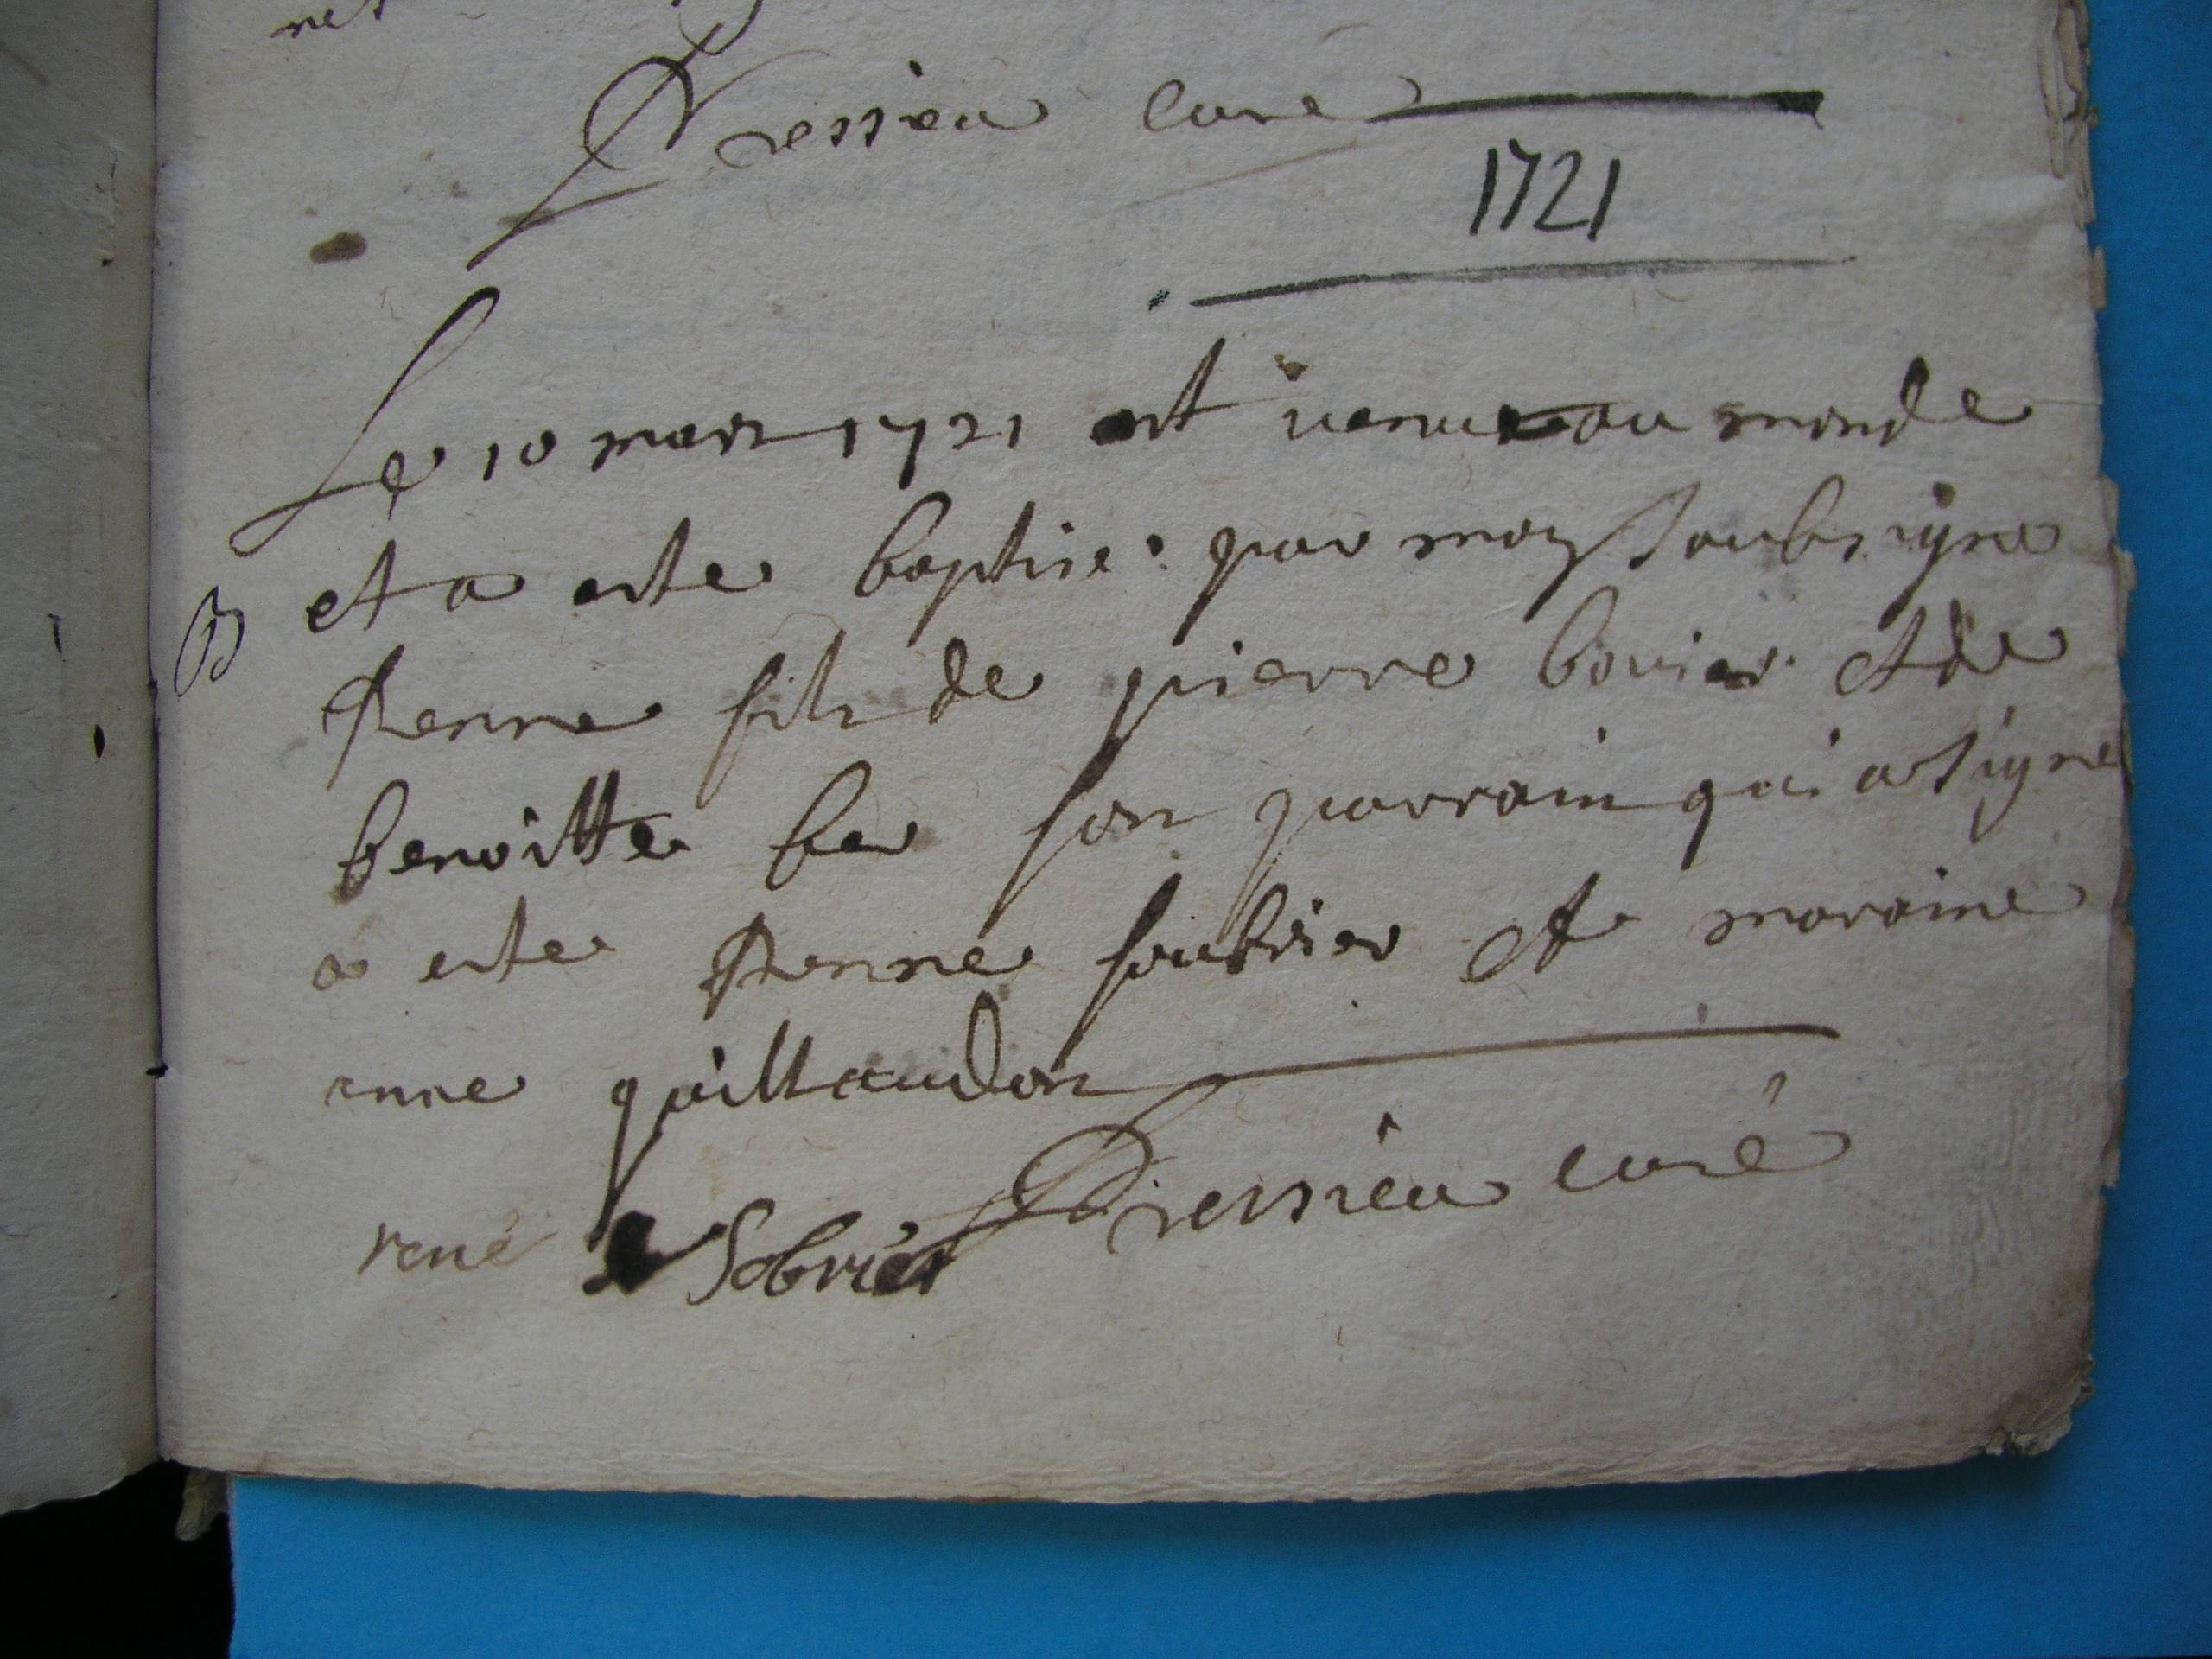 Pressieu Curé
1721
Le 10 mars 1721 est venu au monde
B
et a este baptise par moy Soubsigne
Renne fils de pierre bovier et de
benoitte be son parrain qui a signe
a este Renne soubrier et maraine
anne guillaudon
Pressieu curé
rené Sobrier